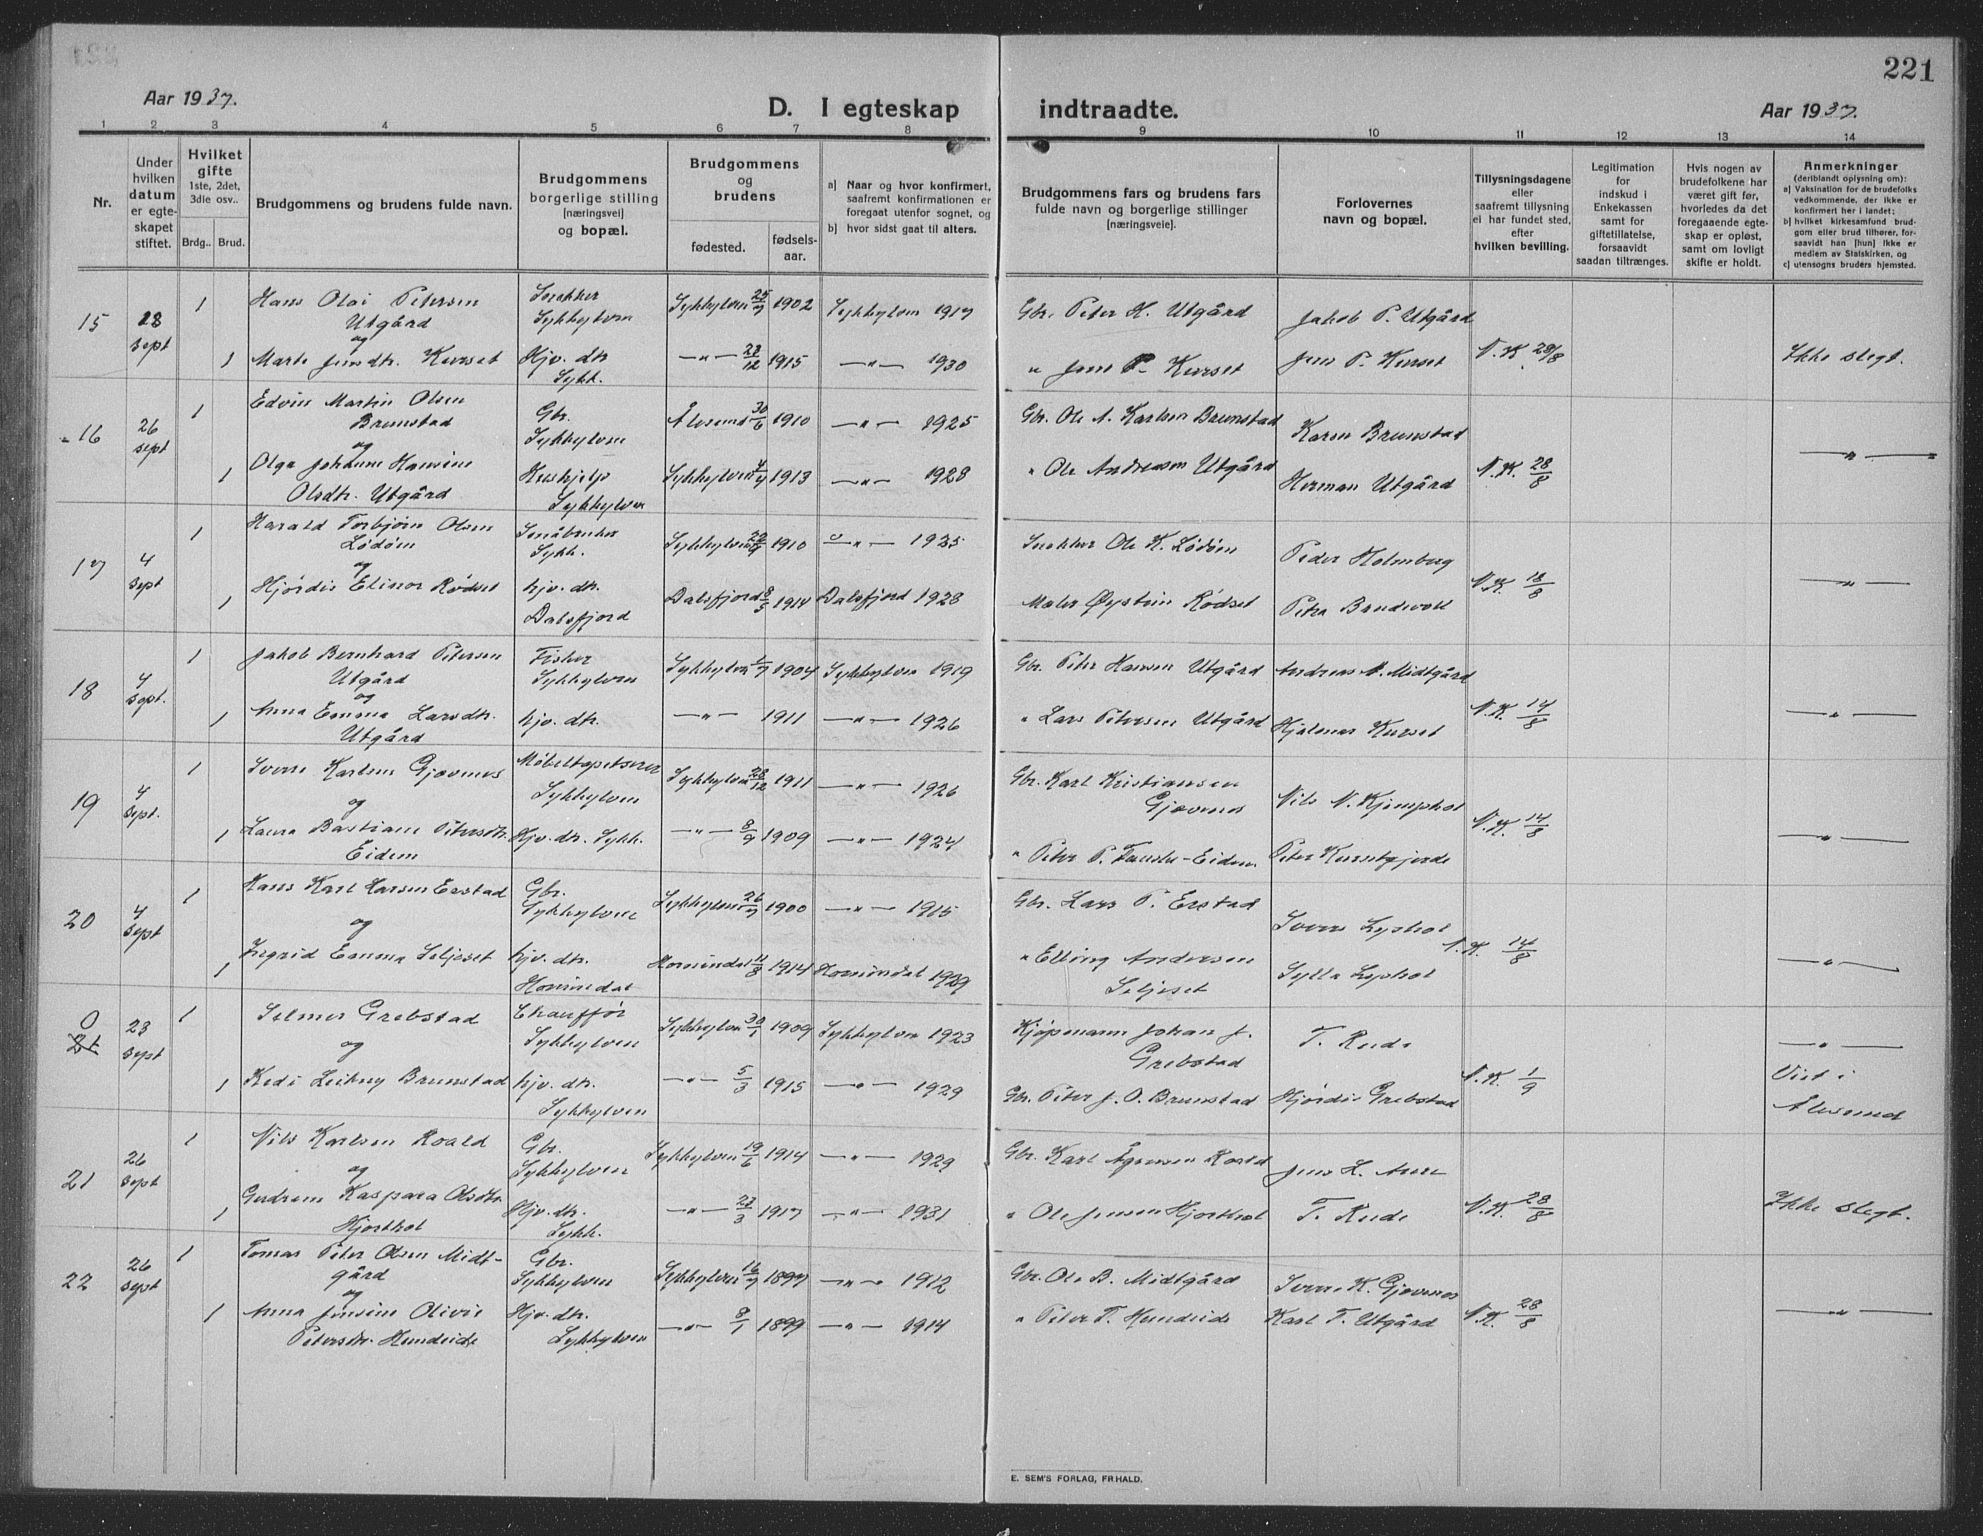 221
Aar 1937.
D. I egteskap indtraadte.
Aar 1937.
1 2 3 4 5 6 7 8 9 10 11 12 13 14
Nr.
Under hvilken datum er egteskapet stiftet.
Hvilket gifte
1ste, 2det, 3die osv..
Brdg.. Brud.
Brudgommens og brudens fulde navn.
Brudgommens borgerlige stilling [næringsvei] og bopæl.
Brudgommens og brudens
fødested.
fødselsaar.
a] Naar og hvor konfirmert, saafremt konfirmationen er foregaat utenfor sognet, og
b] hvor sidst gaat til alters.
Brudgommens fars og brudens fars fulde navn og borgerlige stillinger [næringsveie].
Forlovernes navn og bopæl.
Tillysningsdagene eller saafremt tillysning ei har fundet sted, efter hvilken bevilling.
Legitimation for indskud i Enkekassen samt for giftetillatelse, forsaavidt saadan tiltrænges.
Hvis nogen av brudefolkene har været gift før, hvorledes da det foregaaende egteskap er opløst, samt om lovligt skifte er holdt.
Anmerkninger
(deriblandt oplysning om):
a) Vaksination for de brudefolks vedkommende, der ikke er konfirmert her i landet;
b) hvilket kirkesamfund brudgom eller brud tilhører, forsaavidt han [hun] ikke er medlem av Statskirken, og
c) utensogns bruders hjemsted.
15 28 sept 1 Hans Olai Petersen Utgård Snekker Sykkylven Sykkylven 25/7 1902 Sykkylven 1917 Gbr. Peter H. Utgård Jakob P. Utgård
og
1 Marte Jensdtr. Kurset Hjv. dtr. Sykk. -"- 28/12 1915 -"- 1930 " Jens P. Kurset Jens P. Kurset N.K 28/8 Ikke slegt.
16 26 sept 1 Edvin Martin Olsen Brunstad Gbr. Sykkylven Ålesund 30/6 1910 -"- 1925 Gbr. Ole A. Karlsen Brunstad Karen Brunstad
og
1 Olga Johanne Hansine Olsdtr. Utgård Sykkylven Sykkylven 4/7 1913 -"- 1928 " Ole Andreasen Utgård Herman Utgård N.K. 28/8 -"-
17 4 sept 1 Harald Torbjørn Olsen Lødøm Småbruker Sykk. Sykkylven 1910 -"- 1925 Snekker Ole K. Lødøm Peder Holmberg
og
1 Hjørdis Elinor Rødset hjv. dtr. Dalsfjord Dalsfjord 8/5 1914 Dalsfjord 1928 Maler Øystein Rødset Petra Brudevoll N.K. 18/8 -"-
18 4 sept. 1 Jakob Bernhard Petersen Utgård Fisker Sykkylven Sykkylven 1/7 1904 Sykkylven 1919 Gbr. Peter Hansen Utgård Andreas M. Midtgård
og
1 Anna Emma Larsdtr. Utgård hjv. dtr. -"- 1911 -"- 1926 " Lars Petersen Utgård Hjalmar Kurset N.K. 14/8 -"-
19 4 sept. 1 Sverre Karlsen Gjævenes Møbeltapetserer Sykkylven Sykkylven 28/12 1911 -"- 1926 Gbr. Karl Kristiansen Gjævenes Nils N. Kjemphol
og
1 Laura Bastiane Petersdtr. Eidem Hjv. dtr. Sykk. -"- 8/9 1909 -"- 1924 " Peter P. Tandstr-Eidem Peter Kurseth N.K. 14/8 -"-
20 4 sept 1 Hans Karl Larsen Erstad Gbr. Sykkylven Sykkylven 26/7 1900 -"- 1915 Gbr. Lars P. Erstad Sverre Lyshol
og
1 Ingrid Emma Seljeset hjv. dtr. Hornindal Hornindal 11/8 1914 Hornindal 1929 " Elling Andersen Seljeset Sylla Lyshol N.K. 14/8 -"-
0 21 23 sept 1 Selmer Grebstad Chauffør Sykkylven Sykkylven 30/1 1909 Sykkylven 1923 Kjøpmann Johan J. Grebstad T. Rude -"-
og
1 Kedi Leikny Brunstad hjv. dtr. Sykkylven -"- 5/3 1915 -"- 1929 Gbr. Peter J. O. Brunstad Hjørdis Grebstad N.K. 1/9 Viet i Ålesund
21 26 sept 1 Nils Karlsen Roald Gbr. Sykkylven Sykkylven 19/6 1914 -"- 1929 Gbr. Karl Ågesen Roald Jens L. Aure
og
1 Gudrun Kaspara Olsdtr. Hjorthol Hjv. dtr. Sykk. -"- 23/3 1917 -"- 1931 " Ole Jensen Hjorthol T. Rude N.K. 28/8 Ikke slegt.
22 26 sept 1 Tomas Peter Olsen Midtgård Gbr. Sykkylven Sykkylven 16/7 1897 -"- 1912 Gbr. Ole B. Midtgård Sverre K. Gjævenes
og
1 Anna Jensine Olivie Petersdtr. Hundeide Hjv. dtr. Sykkylven -"- 8/1 1899 -"- 1914 " Peter T. Hundeide Karl T. Utgård N.K. 28/8 -"-
E. SEM'S FORLAG, FR.HALD.